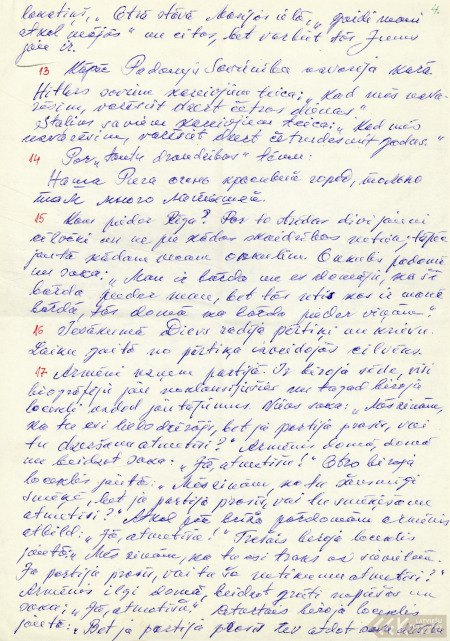 4.
lonatiņi, „Otrā stāvā Marijas ielā, „gaidi mani
atkal mājās" un citas, bet varbūt tās Jums
jau ir.
13 Kāpēc Padomju Savienība uzvarēja karā.
Hitlers saviem kareivjiem teica: „Kad mēs uzva-
rēsim, varēsiet dzert četras dienas."
Staļins saviem kareivjiem teica: „Kad mēs
uzvarēsim, varēsiet dzert četrdesmit gadus."
14 Par „tautu draudzības" tēmu:
Наша Рига очень красивый город, только
там много латышей.
15 Kam pieder Rīga? Par to strīdas divi jauni
cilvēki un ne pie kādas skaidrības netiek, tāpēc
jautā kādam vecam onkulim. Onkulis padomā
un saka: „Man ir bārda un es domāju, ka šī
bārda pieder man, bet tās utis kas ir manā
bārdā, tās domā ka bārda pieder viņām."
16 Iesākumā Dievs radīja pērtiķi un krievu.
Laika gaitā no pērtiķa izveidojās cilvēks.
17 Armēni uzņem partijā. Ir biroja sēde, visi
biogrāfiju jau noklausījušies un tagad biroja
locekļi uzdod jautājumus. Viens saka: „Mēs zinām,
ka tu esi liels dzērājs, bet ja partija prasīs, vai
tu dzeršanu atmetīsi?" Armēnis domā, domā
un beidzot saka: „Jā, atmetīšu!" Otrs biroja
loceklis jautā: „Mēs zinām, ka tu šausmīgi
smēķē, bet ja partija prasīs, vai tu smēķēšanu
atmetīsi?" Atkal pēc brīža pārdomām armēnis
atbild: „Jā, atmetīšu!" Trešais biroja loceklis
jautā: „Mēs zinām, ka tu esi traks uz sievietēm.
Ja partija prasīs, vai tu šo netikumu atmetīsi?"
Armēnis ilgi domā, beidzot grūti nopūšas un
saka: „Jā, atmetīšu." Ceturtais biroja loceklis
jautā: „Bet ja partija prasīs tev atdot savu dzīvību